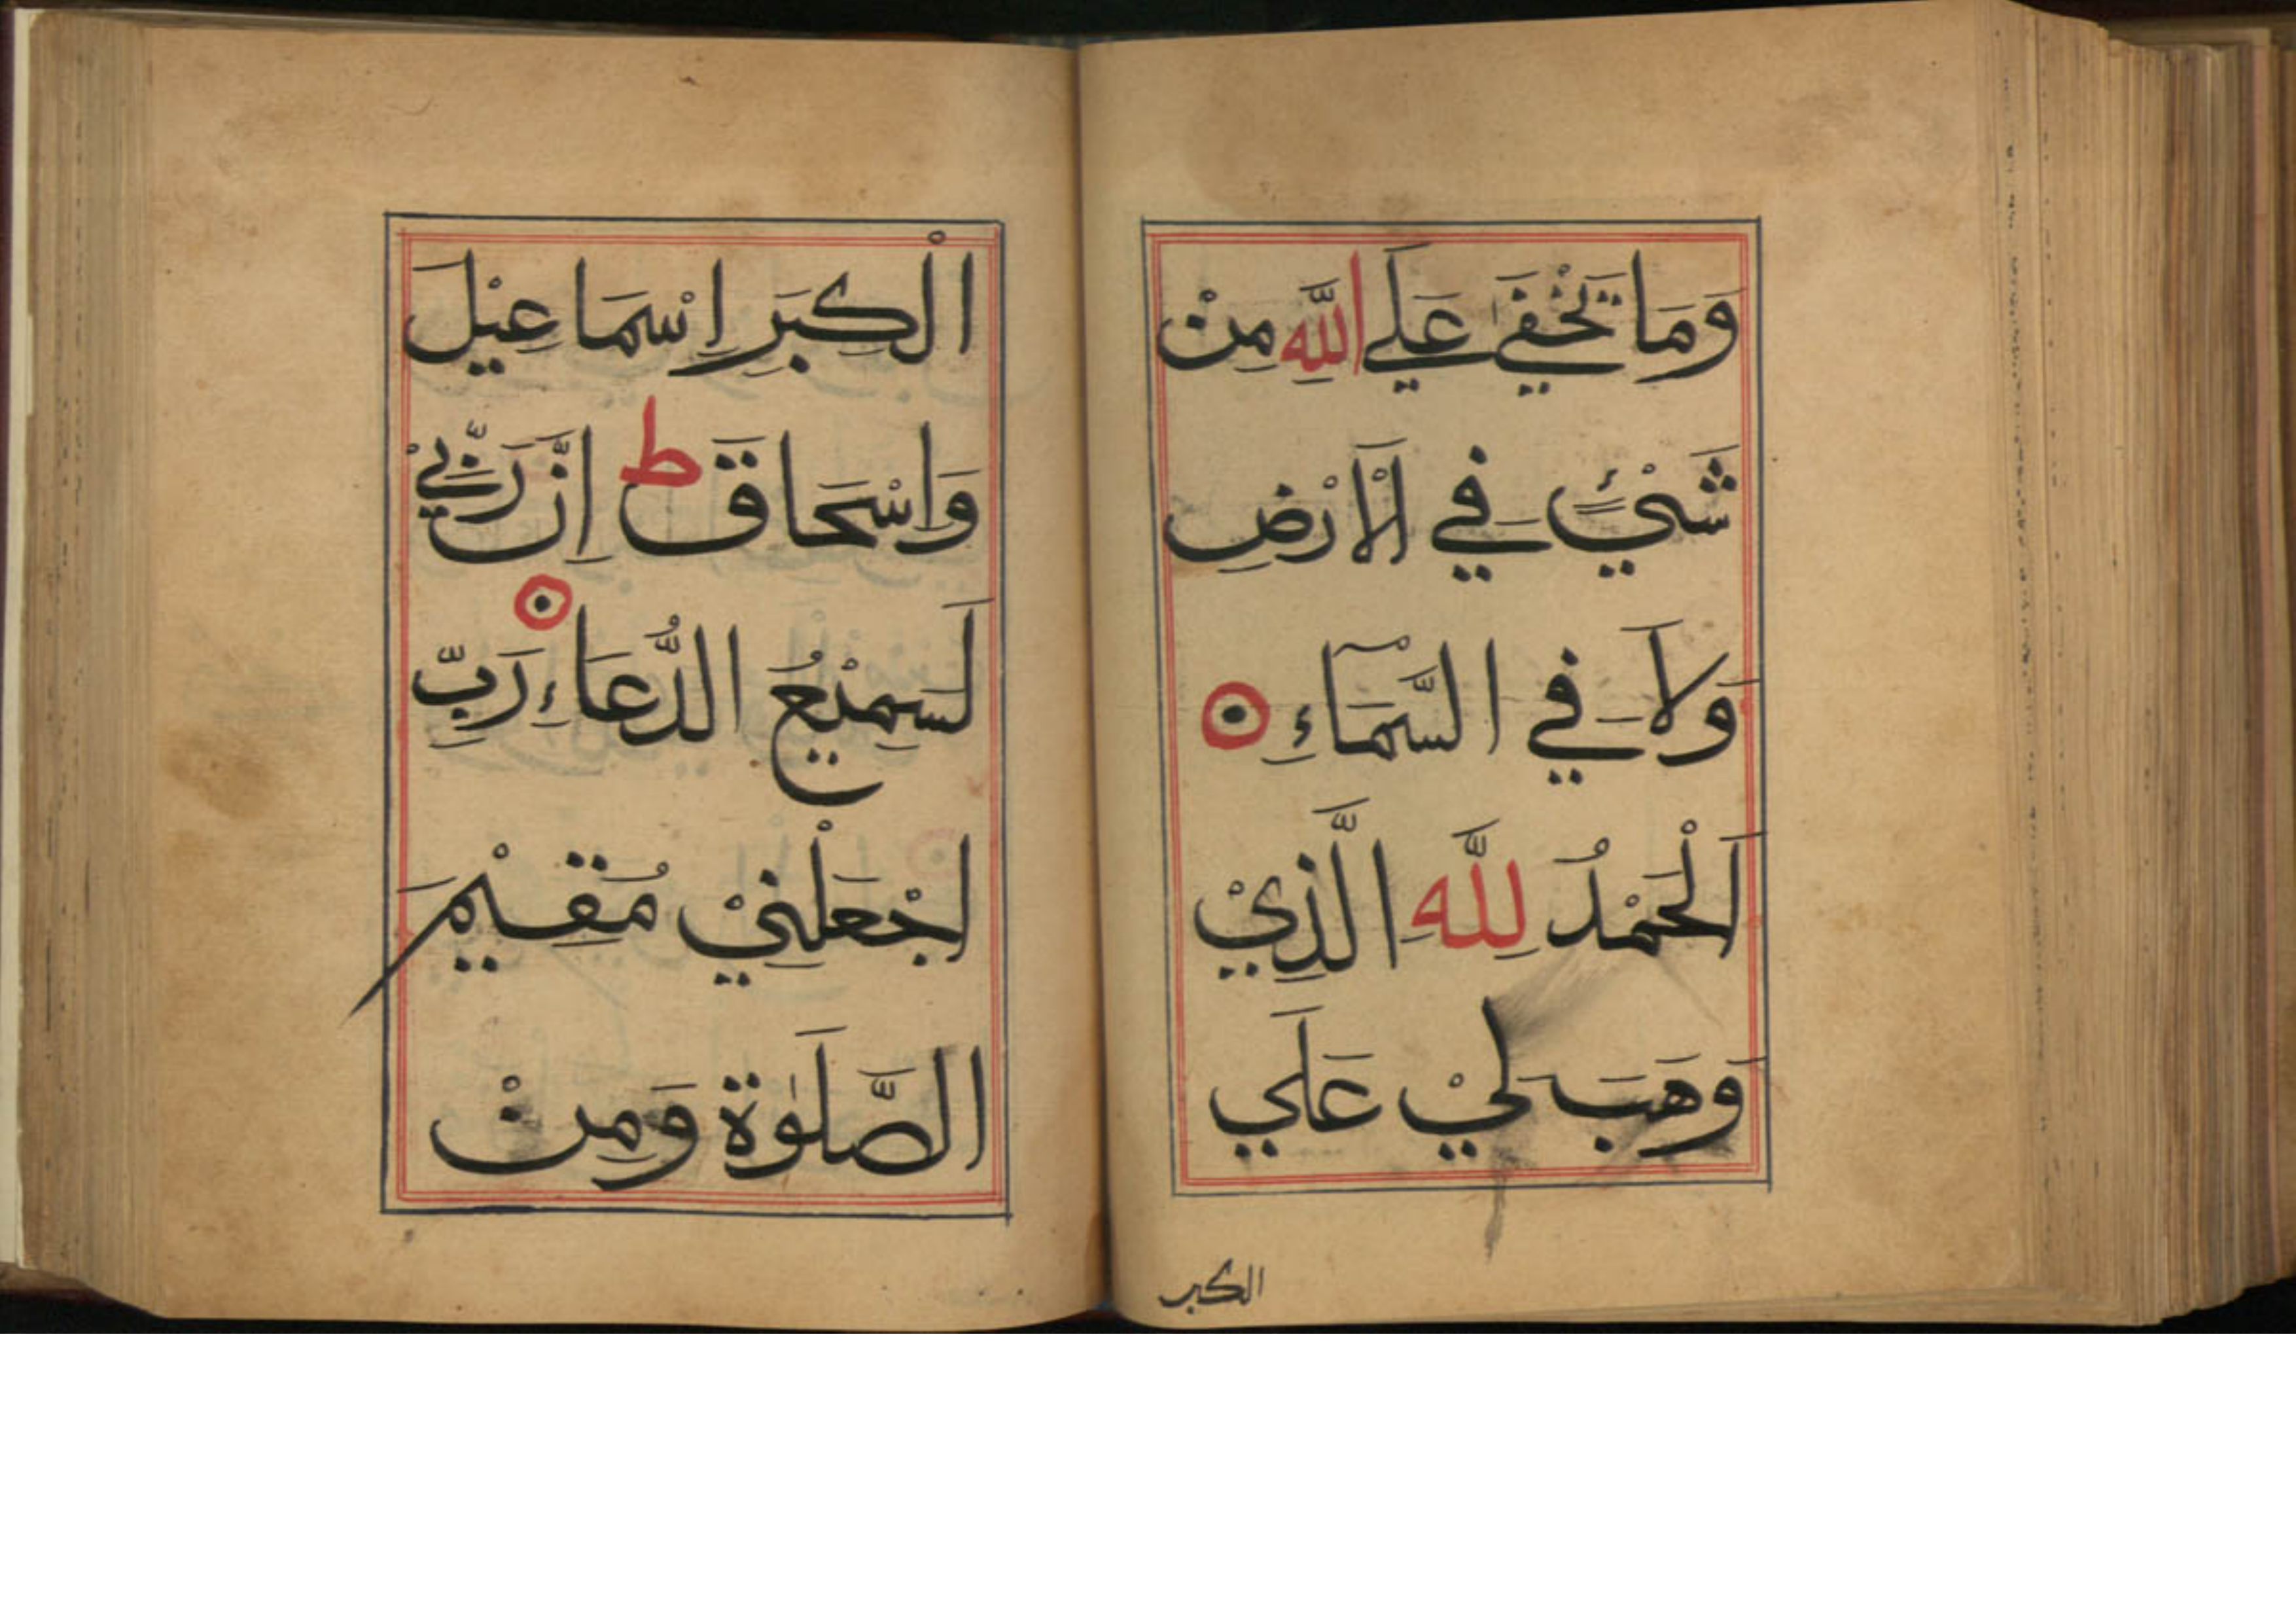 وَمَا تَخْفَىٰ عَلَي اللَّهِ مِنْ
شَيْءٍ فِي الْاَرْضِ
وَلَا فِي السَّمَآءِ
اَلْحَمْدُ لِلَّهِ الَّذِيْ
وَهَبَ لِيْ عَلَي
الكبر
الْكِبَرِ اِسْمَاعِيْلَ
وَاِسْحَاقَ ط اِنَّ رَبِّيْ
لَسَمِيْعُ الدُّعَاءِ رَبِّ
اجْعَلْنِيْ مُقِيْمَ
الصَّلَوٰةَ وَمِنْ